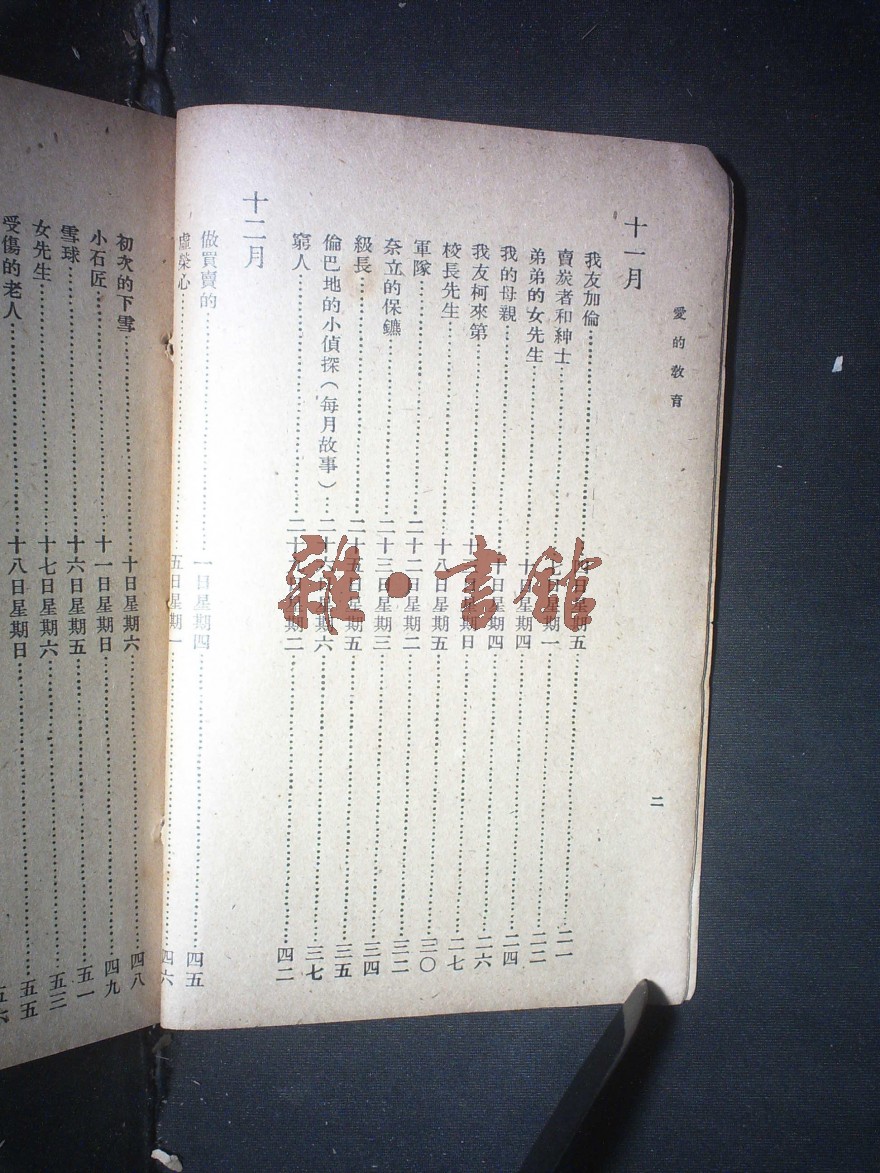 愛的教育
二
十一月
我友加倫……四日星期五……二一
賣炭者和紳士……七日星期一……二二
弟弟的女先生……十日星期四……二四
我的母親……十日星期四……二六
我友柯來第……日星期日……二七
校長先生……十八日星期五……三〇
軍隊……二十二日星期二……三二
奈立的保鑣……二十三日星期三……三四
級長……二十五日星期五……三五
倫巴地的小偵探(每月故事)……二十六日星期六……三七
窮人……二十九日星期二……四二
十二月
做買賣的……一日星期四……四五
虛榮心……五日星期一……四六
初次的下雪……十日星期六……四八
小石匠……十一日星期日……四九
雪球……十六日星期五……五一
女先生……十七日星期六……五三
受傷的老人……十八日星期日……五五
五六
雜·書館